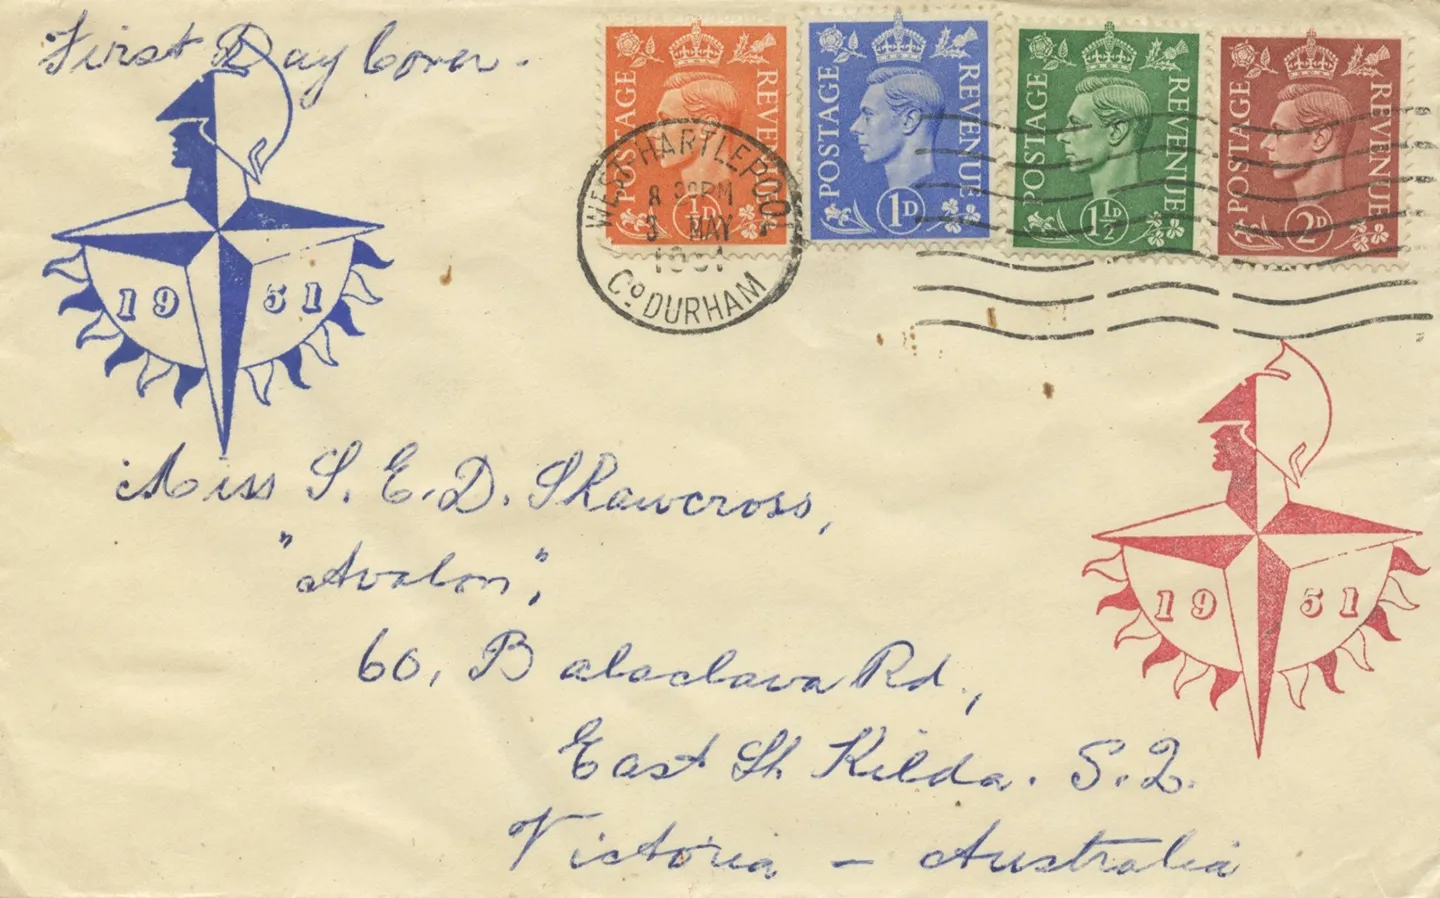 First Day Cover.
POSTAGE REVENUE
½D
POSTAGE REVENUE
1D
POSTAGE REVENUE
1½D
POSTAGE REVENUE
2D
WEST HARTLEPOOL
8 30PM
3 MAY
1951
Co DURHAM
1951
Miss S. E. D. Shawcross,
"Avalon",
60, Balaclava Rd.,
East St. Kilda. S.2.
Victoria - Australia
1951